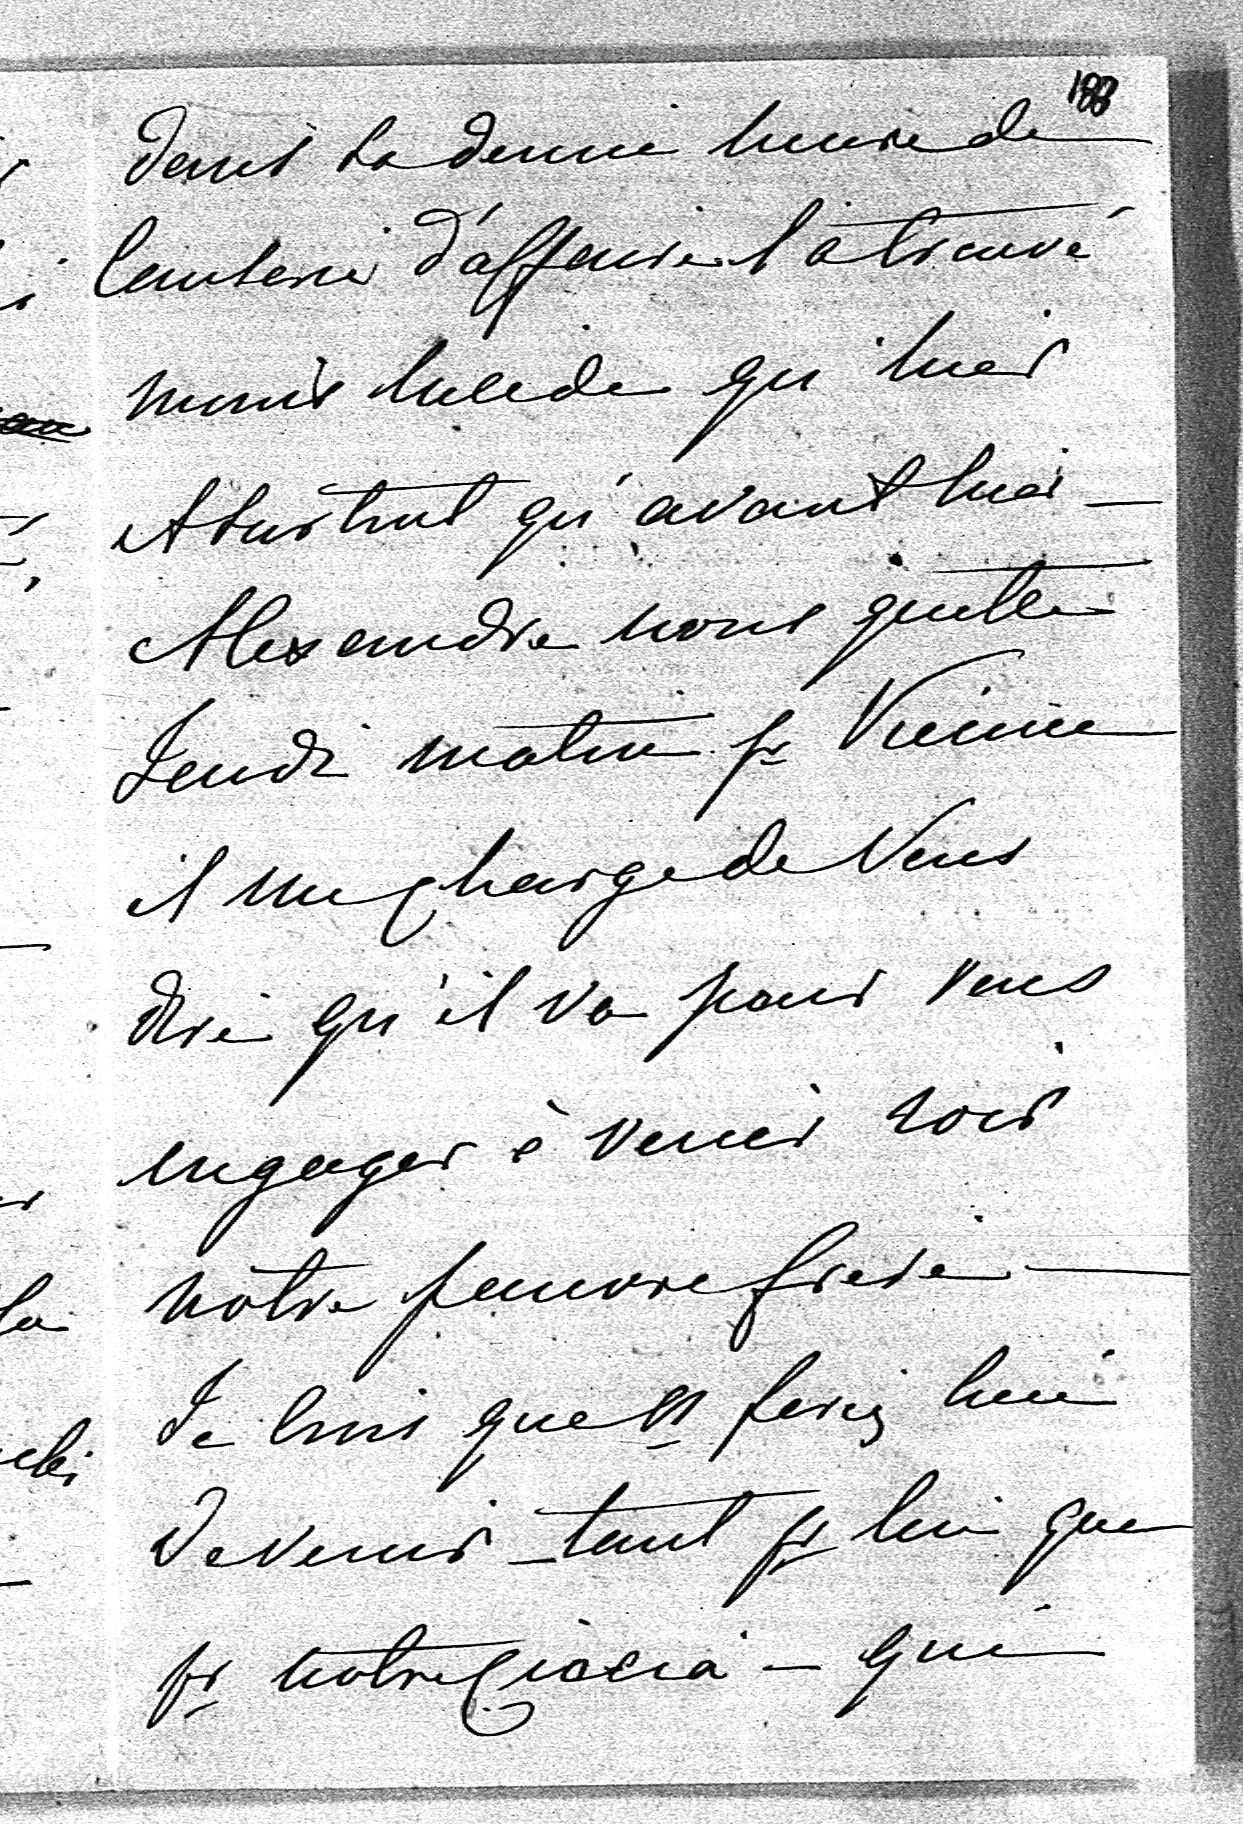 188
dans sa demie heure de
causerie d'affaire l'a trouvé
moins lucide qu'hier
et surtout qu'avant hier —
Alexandre nous quitte
Jeudi matin pr Vienne
il me charge de Vous
dire qu'il va pour vous
engager à venir voir
nôtre pauvre frere —
Je crois que vs feriez bien
de venir — tant pr lui que
pr notre Ciocia — qui